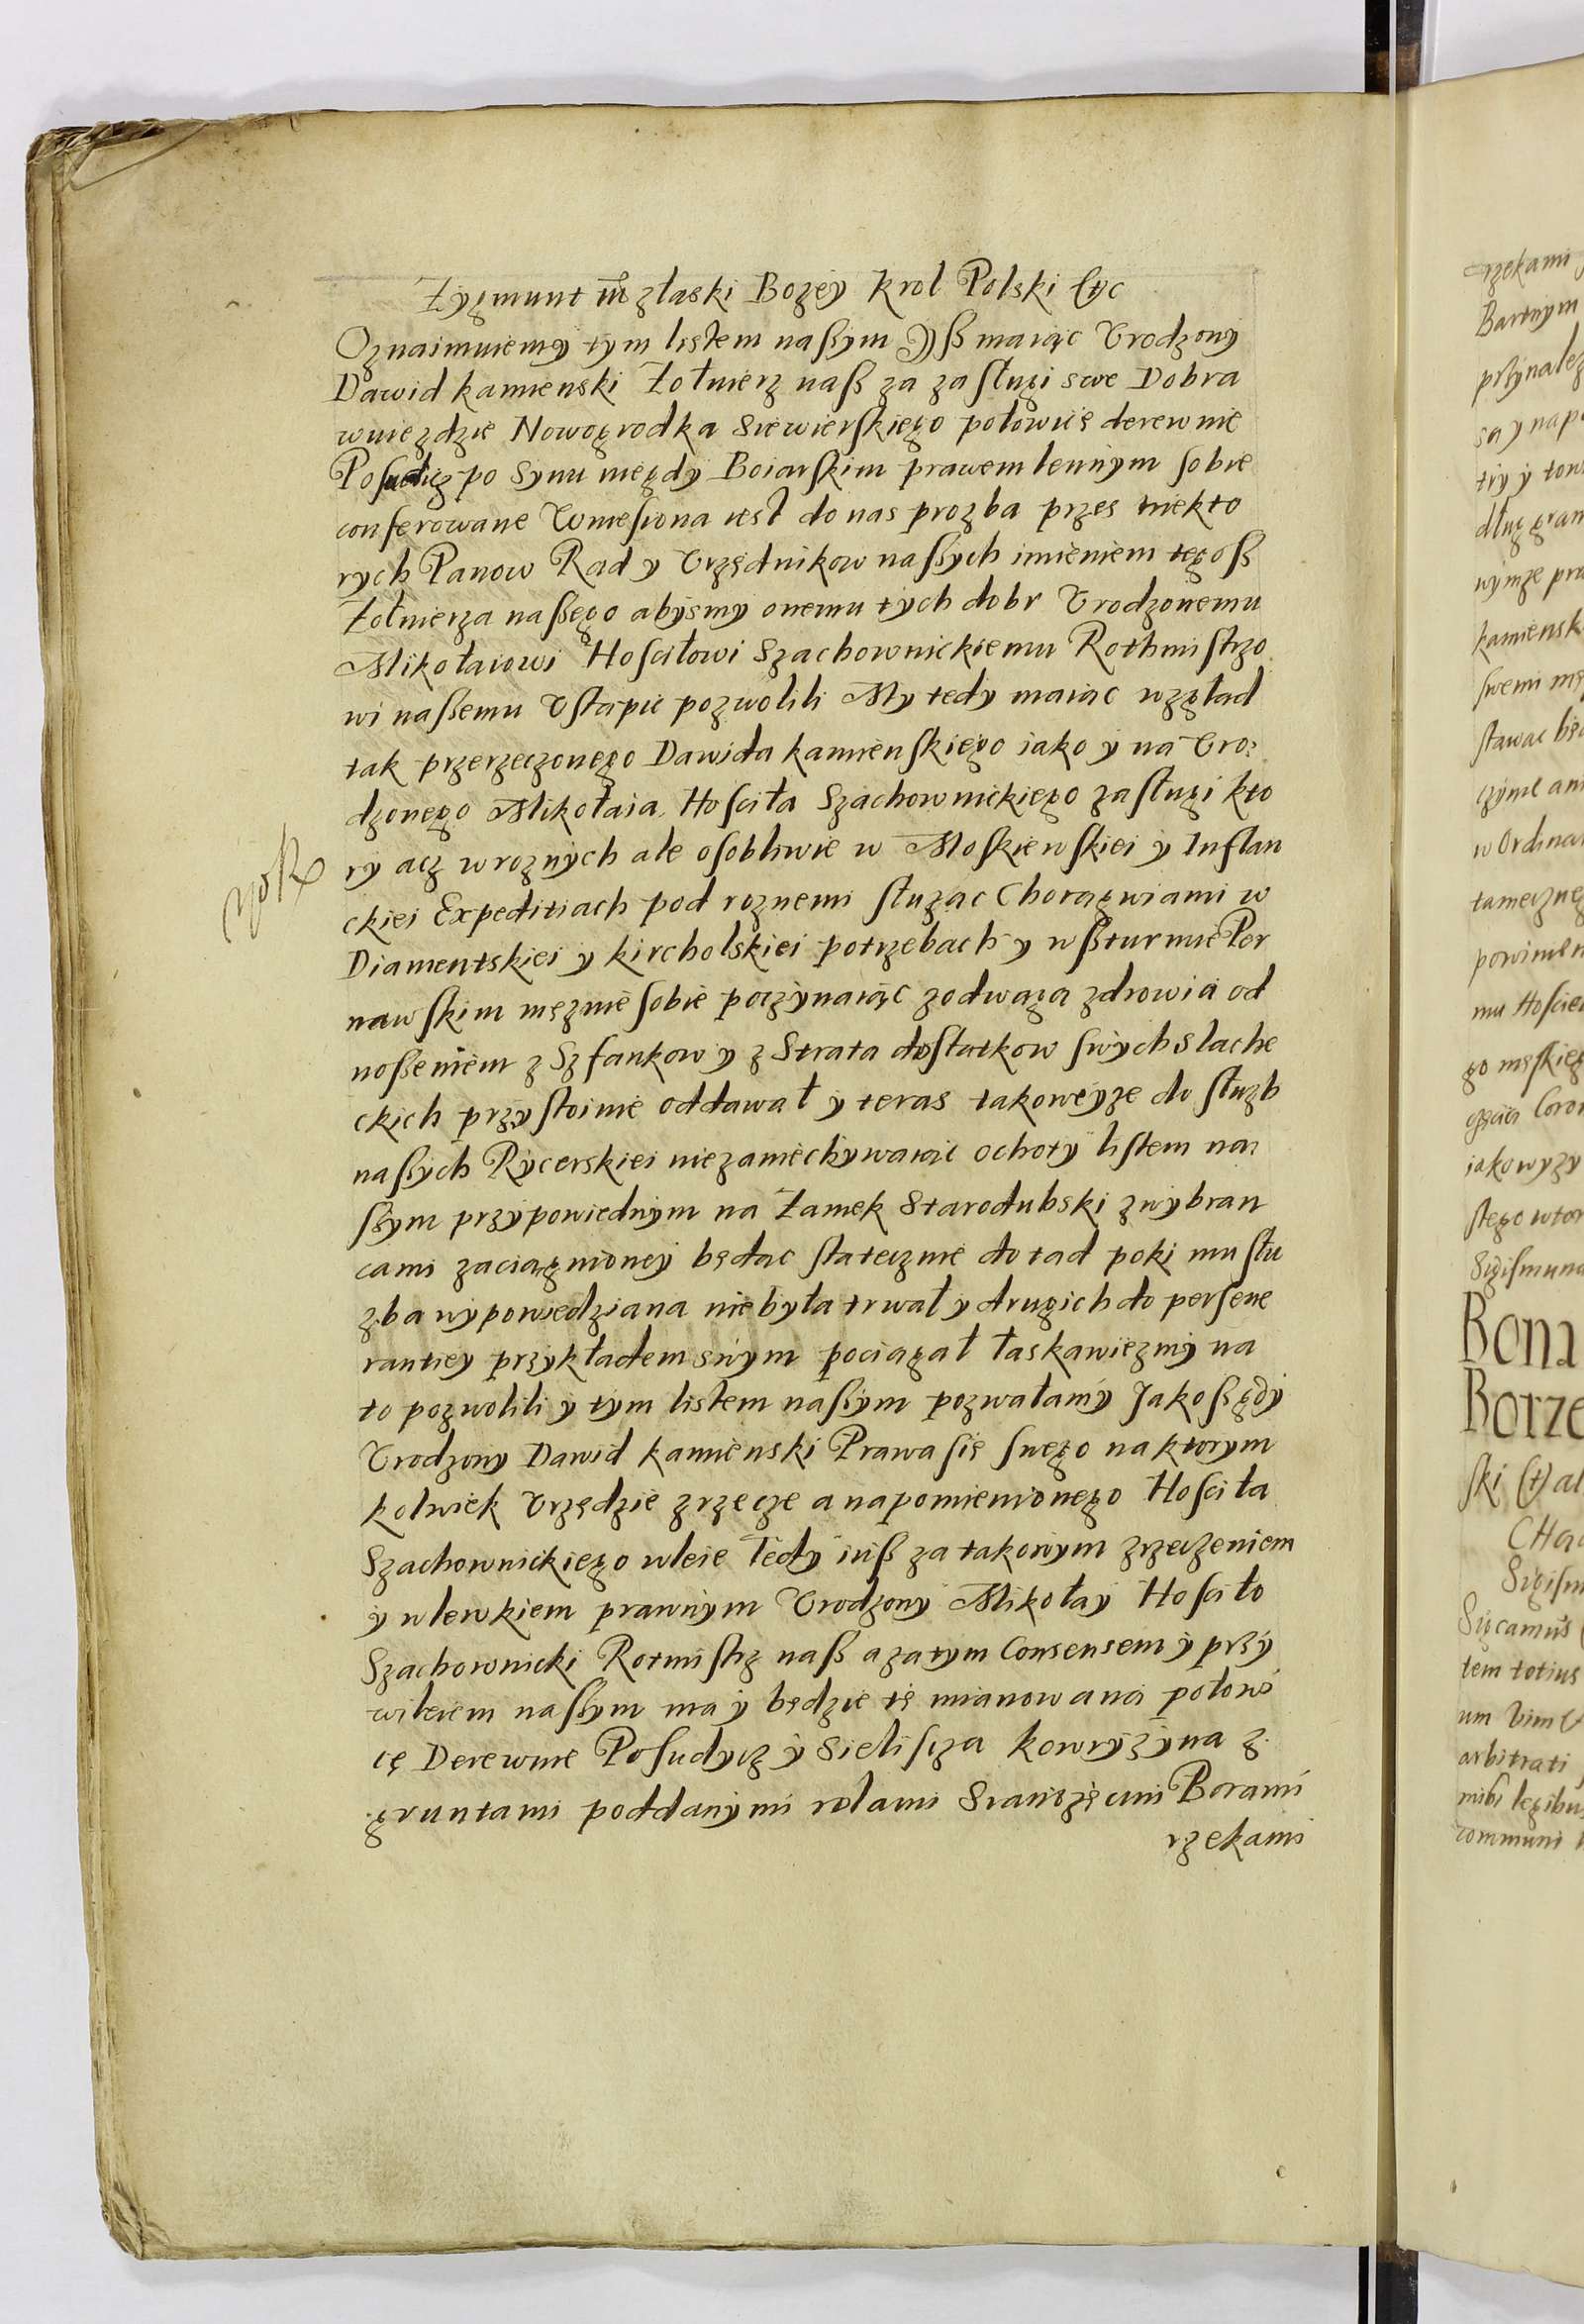 Zygmunt III z łaski Bozey Krol Polski etc
Oznaimuiemy tym listem naszym Isz maiąc Vrodzony
Dawid kamienski Zołnierz nasz za zasługi swe Dobra
wuiezdzie Nowogrodka Siewierskiego połowicę derewnie
Posudicz po Synu niegdy Boiarskim prawem lennym sobie
conferowane Wniesiona iest do nas prozba przes niekto
rych Panow Rad y Vrzędnikow naszych imieniem tegosz
Zołnierza naszego abysmy onemu tych dobr Vrodzonemu
Mikołaiowi Hosciłowi Szachownickiemu Rothmistrzo
wi naszemu Vstąpic pozwolili My tedy maiąc wzgląd
tak przerzeczonego Dawida kamienskiego iako y na Vro:
dzonego Mikołaia Hosciła Szachownickiego zasługi kto
ry acz w roznych ale osobliwie w Moskiewskiei y Inflan
ckiei Expeditiach pod roznemi służąc Chorągwiami w
Diamentskiei y kircholskiei potrzebach y w szturmie Per
nawskim męznie sobie poczynaiąc z odwagą zdrowia od
noszeniem z Szfankow y z Stratą dostatkow swych slache
ckich przystoinie oddawał y teras takoweyze do służb
naszych Rycerskiei niezaniechywaiąc ochoty listem na:
szym przypowiednym na Zamek Starodubski z wybran
cami zaciągnioney będąc statecznie do tąd poki mu słu
zba wypowiedziana nie była trwał y drugich do perseue
rantiey przykładem swym pociągał łaskawiezmy na
to pozwolili y tym listem naszym pozwałamy Jakosz gdy
Vrodzony Dawid kamienski Prawa się swego na ktorym
kolwiek Vrzędzie zrzecze a napomienionego Hosciła
Szachownickiego wleie Tedy iusz za takowym zrzeczeniem
y wlewkiem prawnym Vrodzony Mikołay Hosciło
Szachownicki Rotmistrz nasz a zatym Consensem y przy
wileiem naszym ma y będzie tę mianowaną połowi
cę Derewnie Posudycz y Sieliscza kowryzyna z
gruntami poddanymi rolami Sianozęciami Borami
rzekami
rzekami
Bartnym
są y nap
wymze pra
kamiensk
stawac bę
w Ordinar
powinen
iakowyzy
Bona
Borze
ski etc al
tem totius
arbitrati
communi